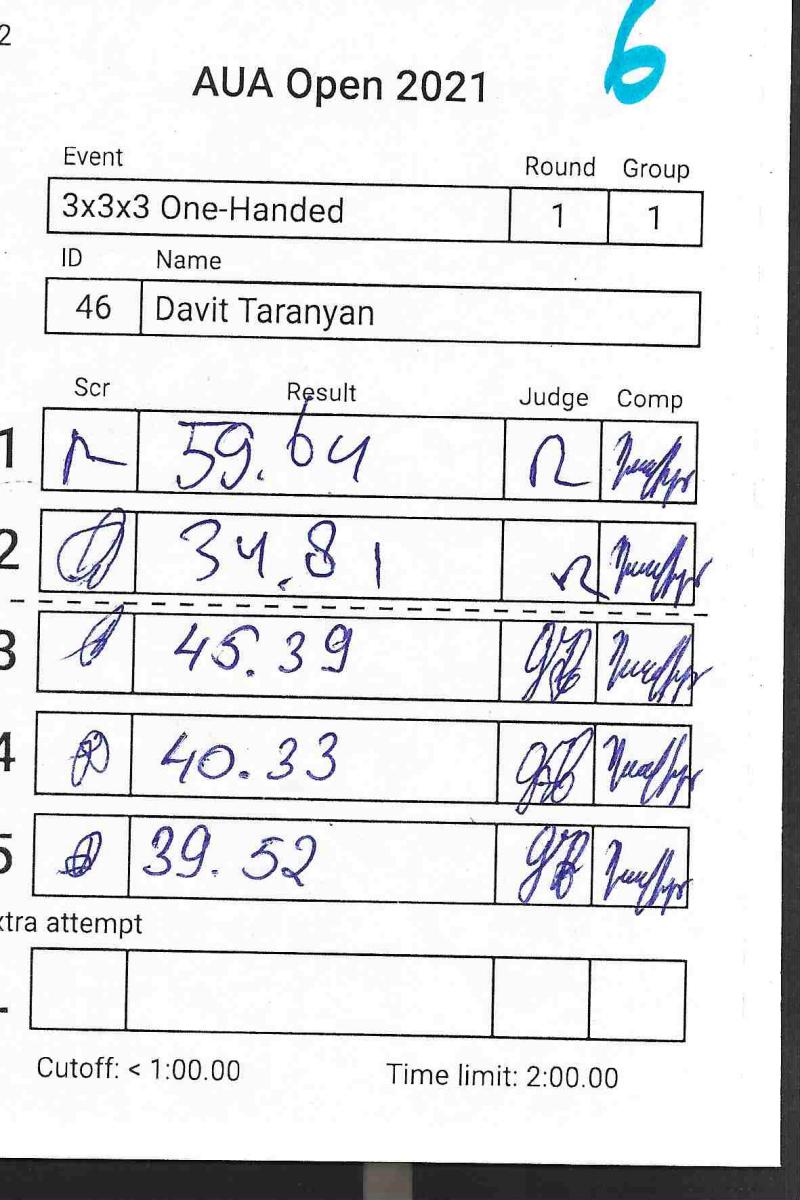 2
6
AUA Open 2021
Event Round Group
3x3x3 One-Handed 1 1
ID Name
46 Davit Taranyan
Scr Result Judge Comp
1 59.64
2 34.81
3 45.39
4 40.33
5 39.52
xtra attempt
Cutoff: < 1:00.00 Time limit: 2:00.00